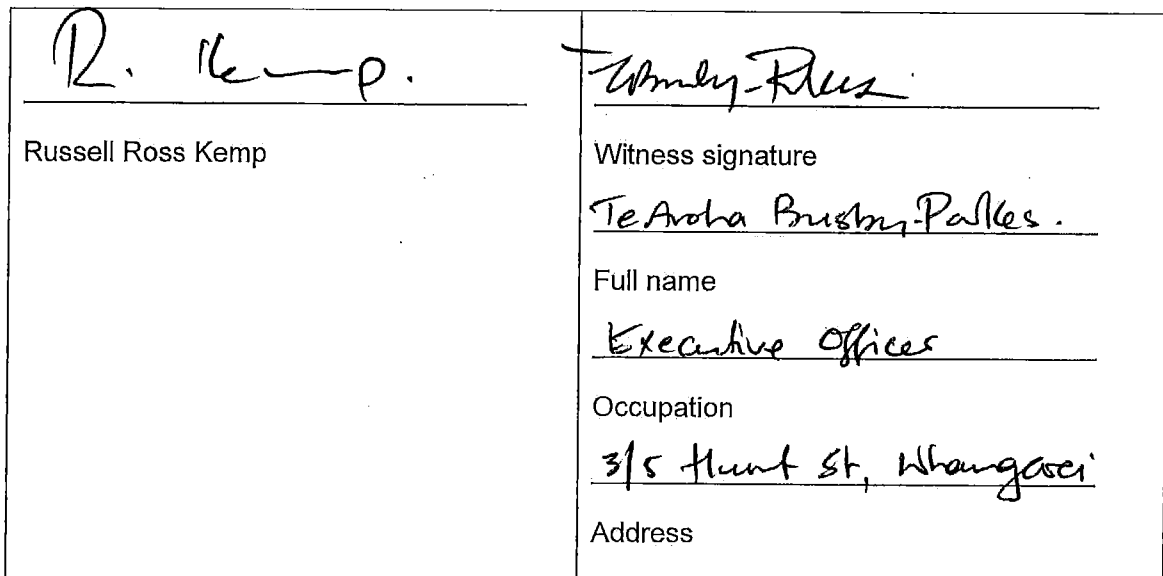 R. Kemp.
Russell Ross Kemp
Witness signature
Te Aroha Busby-Parkes.
Full name
Executive Officer
Occupation
3/5 Hunt St, Whangarei
Address